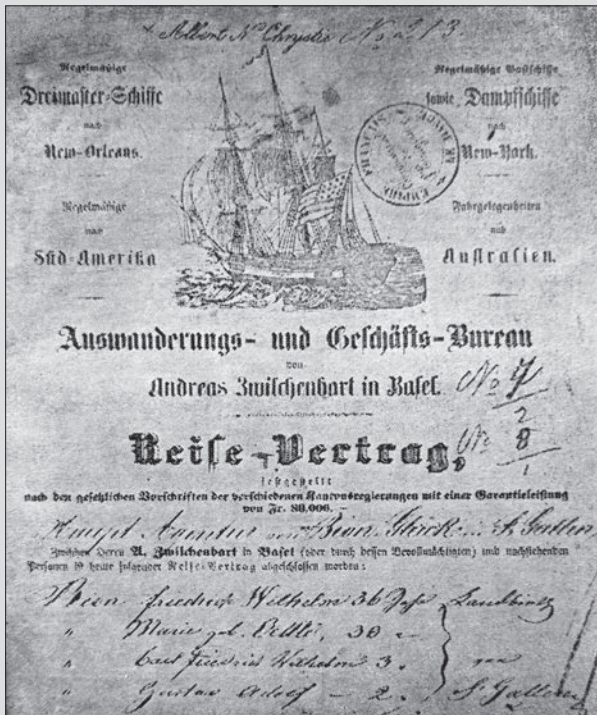 Albert N° Chrystie N° 213
Regelmäßige
Dreimaster-Schiffe
nach
New-Orleans.
Regelmäßige
nach
Süd-Amerika
Regelmäßige Postschiffe
sowie Dampfschiffe
nach
New-York.
Fahrgelegenheiten
nach
Australien.
EMPIRE FRANÇAIS
Auswanderungs- und Geschäfts-Bureau
von
Andreas Zwilchenbart in Basel.
N° 7
2
N° 8
1
Reise-Vertrag,
festgestellt
nach den gesetzlichen Vorschriften der verschiedenen Kantonsregierungen mit einer Garantieleistung
von Fr. 80,000. –
Haupt Agentur von Bion Glück St. Gallen
Zwischen Herrn A. Zwilchenbart in Basel (oder durch dessen Bevollmächtigten) und nachstehenden
Personen ist heute folgender Reise-Vertrag abgeschlossen worden:
Friedrich Wilhelm 36 Jahr
" Marie geb. 30 "
" Carl Friedrich Wilhelm 3 "
" Gustav Adolf – 2 "
von
St. Gallen